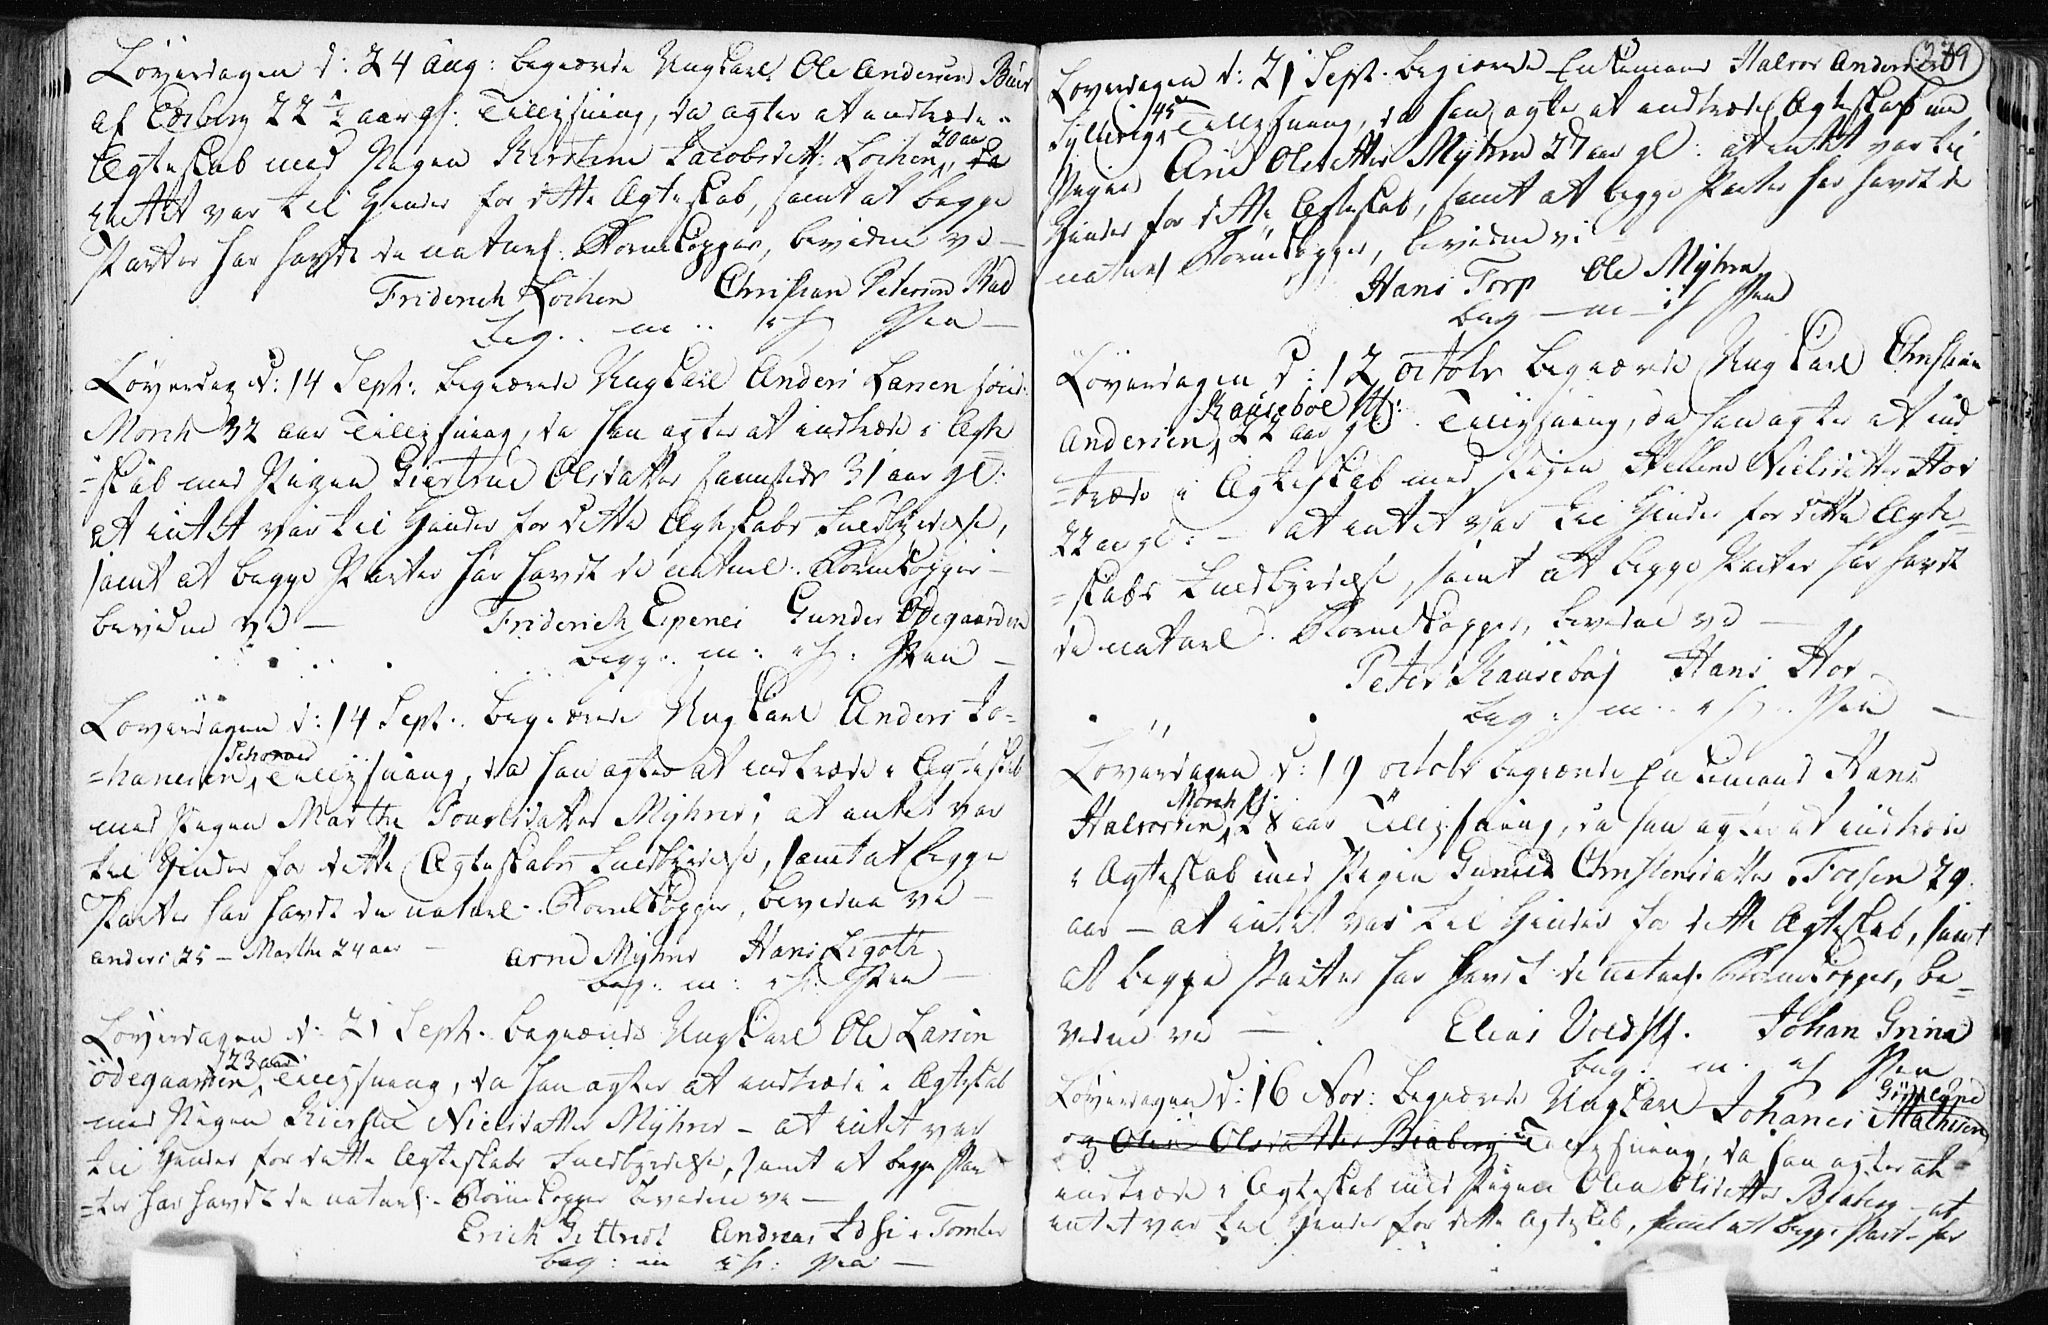 Løverdagen d: 24 Aug: begiærede Ungkarl Ole Andersen
af Edsberg 22 ½ aar gl: Tillysning, da agter at indtræde i
Ægteskab med Pigen Kirstine Jacobsdatt: Lochen, 20 aar
intet var til Hinder for dette Ægteskab, samt at begge
Parter har havt de naturl: Børnekopper, bevidne vi –
Friderich Lochen Christian Petersen Rud
beg: m: i h: Pen –
Løverdag d: 14 Sept: begiærede Ungkarl Anders Larsen
Morch 32 aar Tillysning, da han agter at indtræde i Ægte
=skab med Pigen Giertrue Olsdatter sammesteds 31 aar gl:
at intet var til Hinder for dette Ægteskabs Fuldbyrdelse,
samt at begge Parter har havt de naturl: Børnekopper –
bevidne vi – Friderich Eipenes Gunder Ødegaarden
begg: m: i h: Pen –
Løverdagen d: 14 Sept: begiærede Ungkarl Anders Jo=
=hanesen, Tillysning, da han agter at indtræde i Ægteskab
med Pigen Marthe Poulsdatter Myhrer; at intet var
til Hinder for dette Ægteskabs Fuldbyrdelse, samt at begge
Parter har havt de naturl: Børnekopper, bevidne vi –
Anders 25 – Marthe 24 aar – Arne Myhrer Hans Ligoth
beg: m: i h: Pen –
Løverdagen d: 21 Sept. begiærede Ungkarl Ole Larsen
Ødegaarden, 23 aar Tillysning, da han agter at indtræde i Ægteskab
med Pigen Kierstie Nielsdatter Myhrer – at intet var
til Hinder for dette Ægteskabs Fuldbyrdelse, samt at begge Par
=ter har havt de naturl: Børnekopper bevidne vi –
Erich Gittrest Andreas i Tomter
beg: m i h: Pen –
209
Løverdagen d: 21 Sept. begiærede Enkemand Halvor Andersen
Sylling 45 Tillysning, da han agter at indtræde Ægteskab med
Pigen Ane Olsdatter Myhren 27 aar gl: at intet var til
Hinder for dette Ægteskab, samt at begge Parter har havt de
naturl Børnekopper, bevidne vi
Hans Torp Ole Myhren
beg – m – i h Pen
Løverdagen d: 12 octobr begiærede Ungkarl Christian
Andersen, Rauseboe 22 aar gl: Tillysning, da han agter at ind
=træde i Ægteskab med Pigen Hellene Nielsdatter Hov
22 aar gl: – at intet var til Hinder for dette Ægte=
=skabs Fuldbyrdelse, samt at begge Parter har havt
de naturl. Børnekopper, bevidne vi –
Peter Rausebøj Hans Hov
beg: m: i h: Pen –
Løverdagen d: 19 octobr begiærede Enkemand Hans
Halvorsen, Morch 28 aar Tillysning, da han agter at indtræde
i Ægteskab med Pigen Gunild Christensdatter 29
aar – at intet var til Hinder for dette Ægteskab, samt
at begge Parter har havt de naturl. Børnekopper, be=
vidne vi – Elias Johan Grina
beg: m: i h Pen
Løverdagen d: 16 Nov: begiærede Ungkarl Johanes Mathisen
og Olea Olsdatter Braberg Tillysning, da han agter at
indtræde i Ægteskab med Pigen Olea Olsdatter Braberg – at
intet var til Hinder for dette Ægteskab, samt at begge Part – har